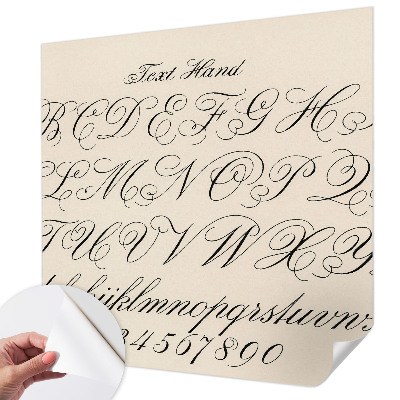 Text Hand
B C D E F G H
L M N O P Q
T U V W X Y
hijklmnopqrstuvw
34567890